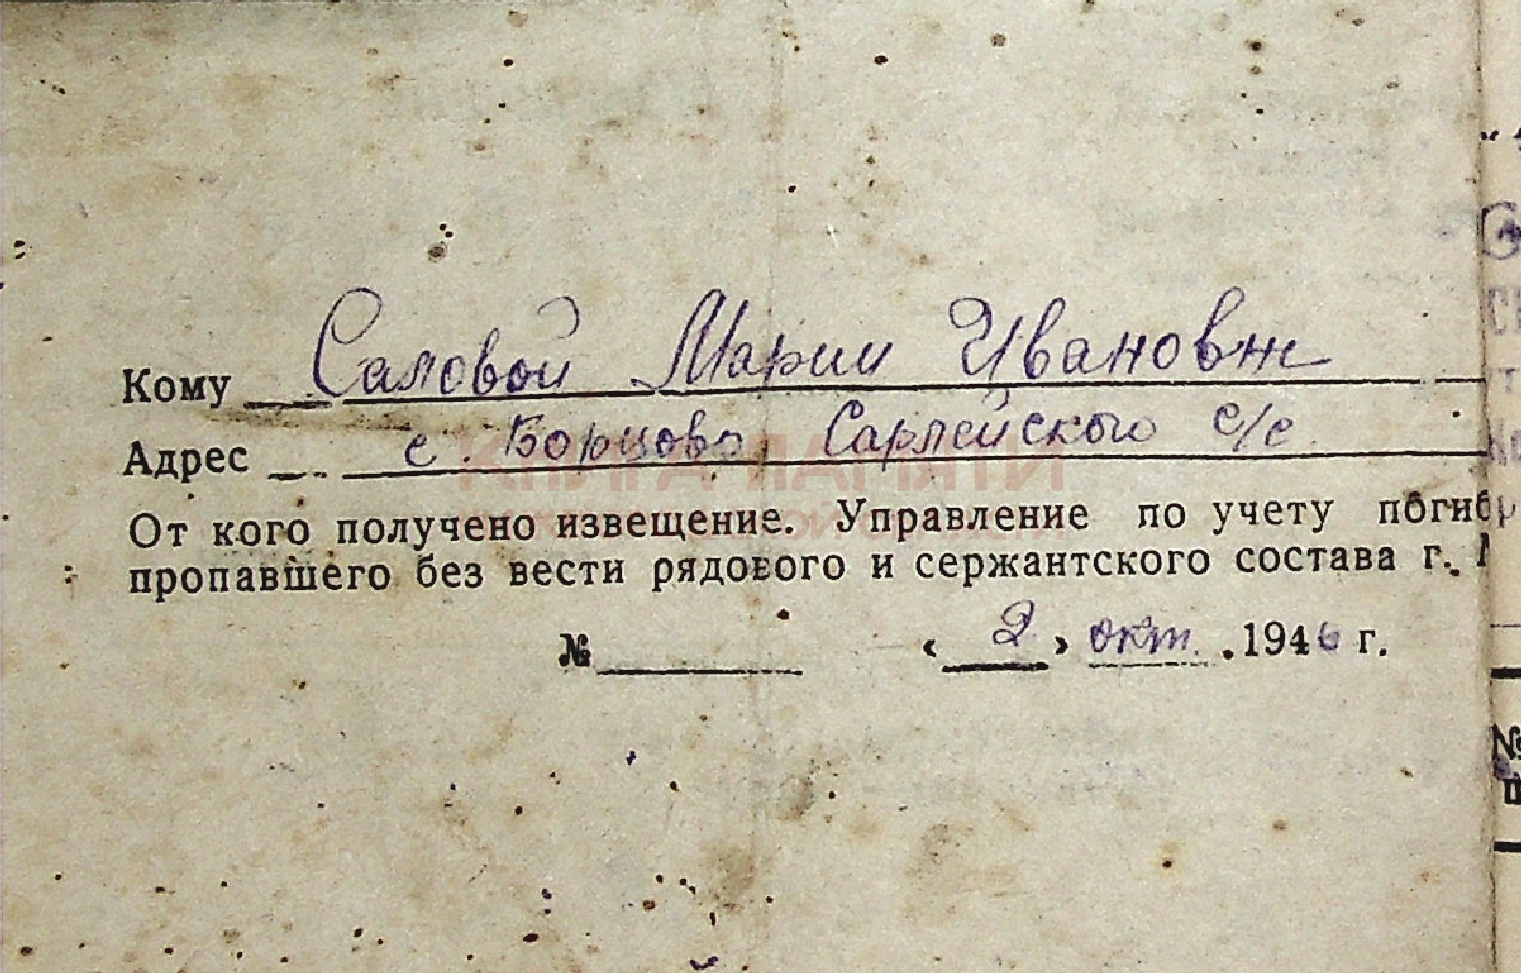 Кому Саловой Марии Ивановн
Адрес с. Борцово, Сарлейского с/с
КНИГА ПАМЯТИ
От кого получено извещение. Управление по учету погиб
пропавшего без вести рядового и сержантского состава г.
№ « 2 » окт. .1946 г.
№